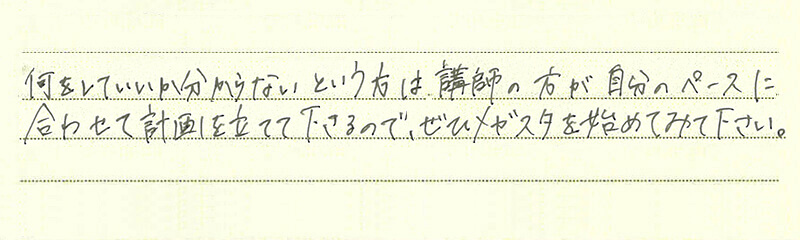 何をしていいか分からないという方は講師の方が自分のペースに
合わせて計画を立てて下さるので、ぜひメガスタを始めてみて下さい。